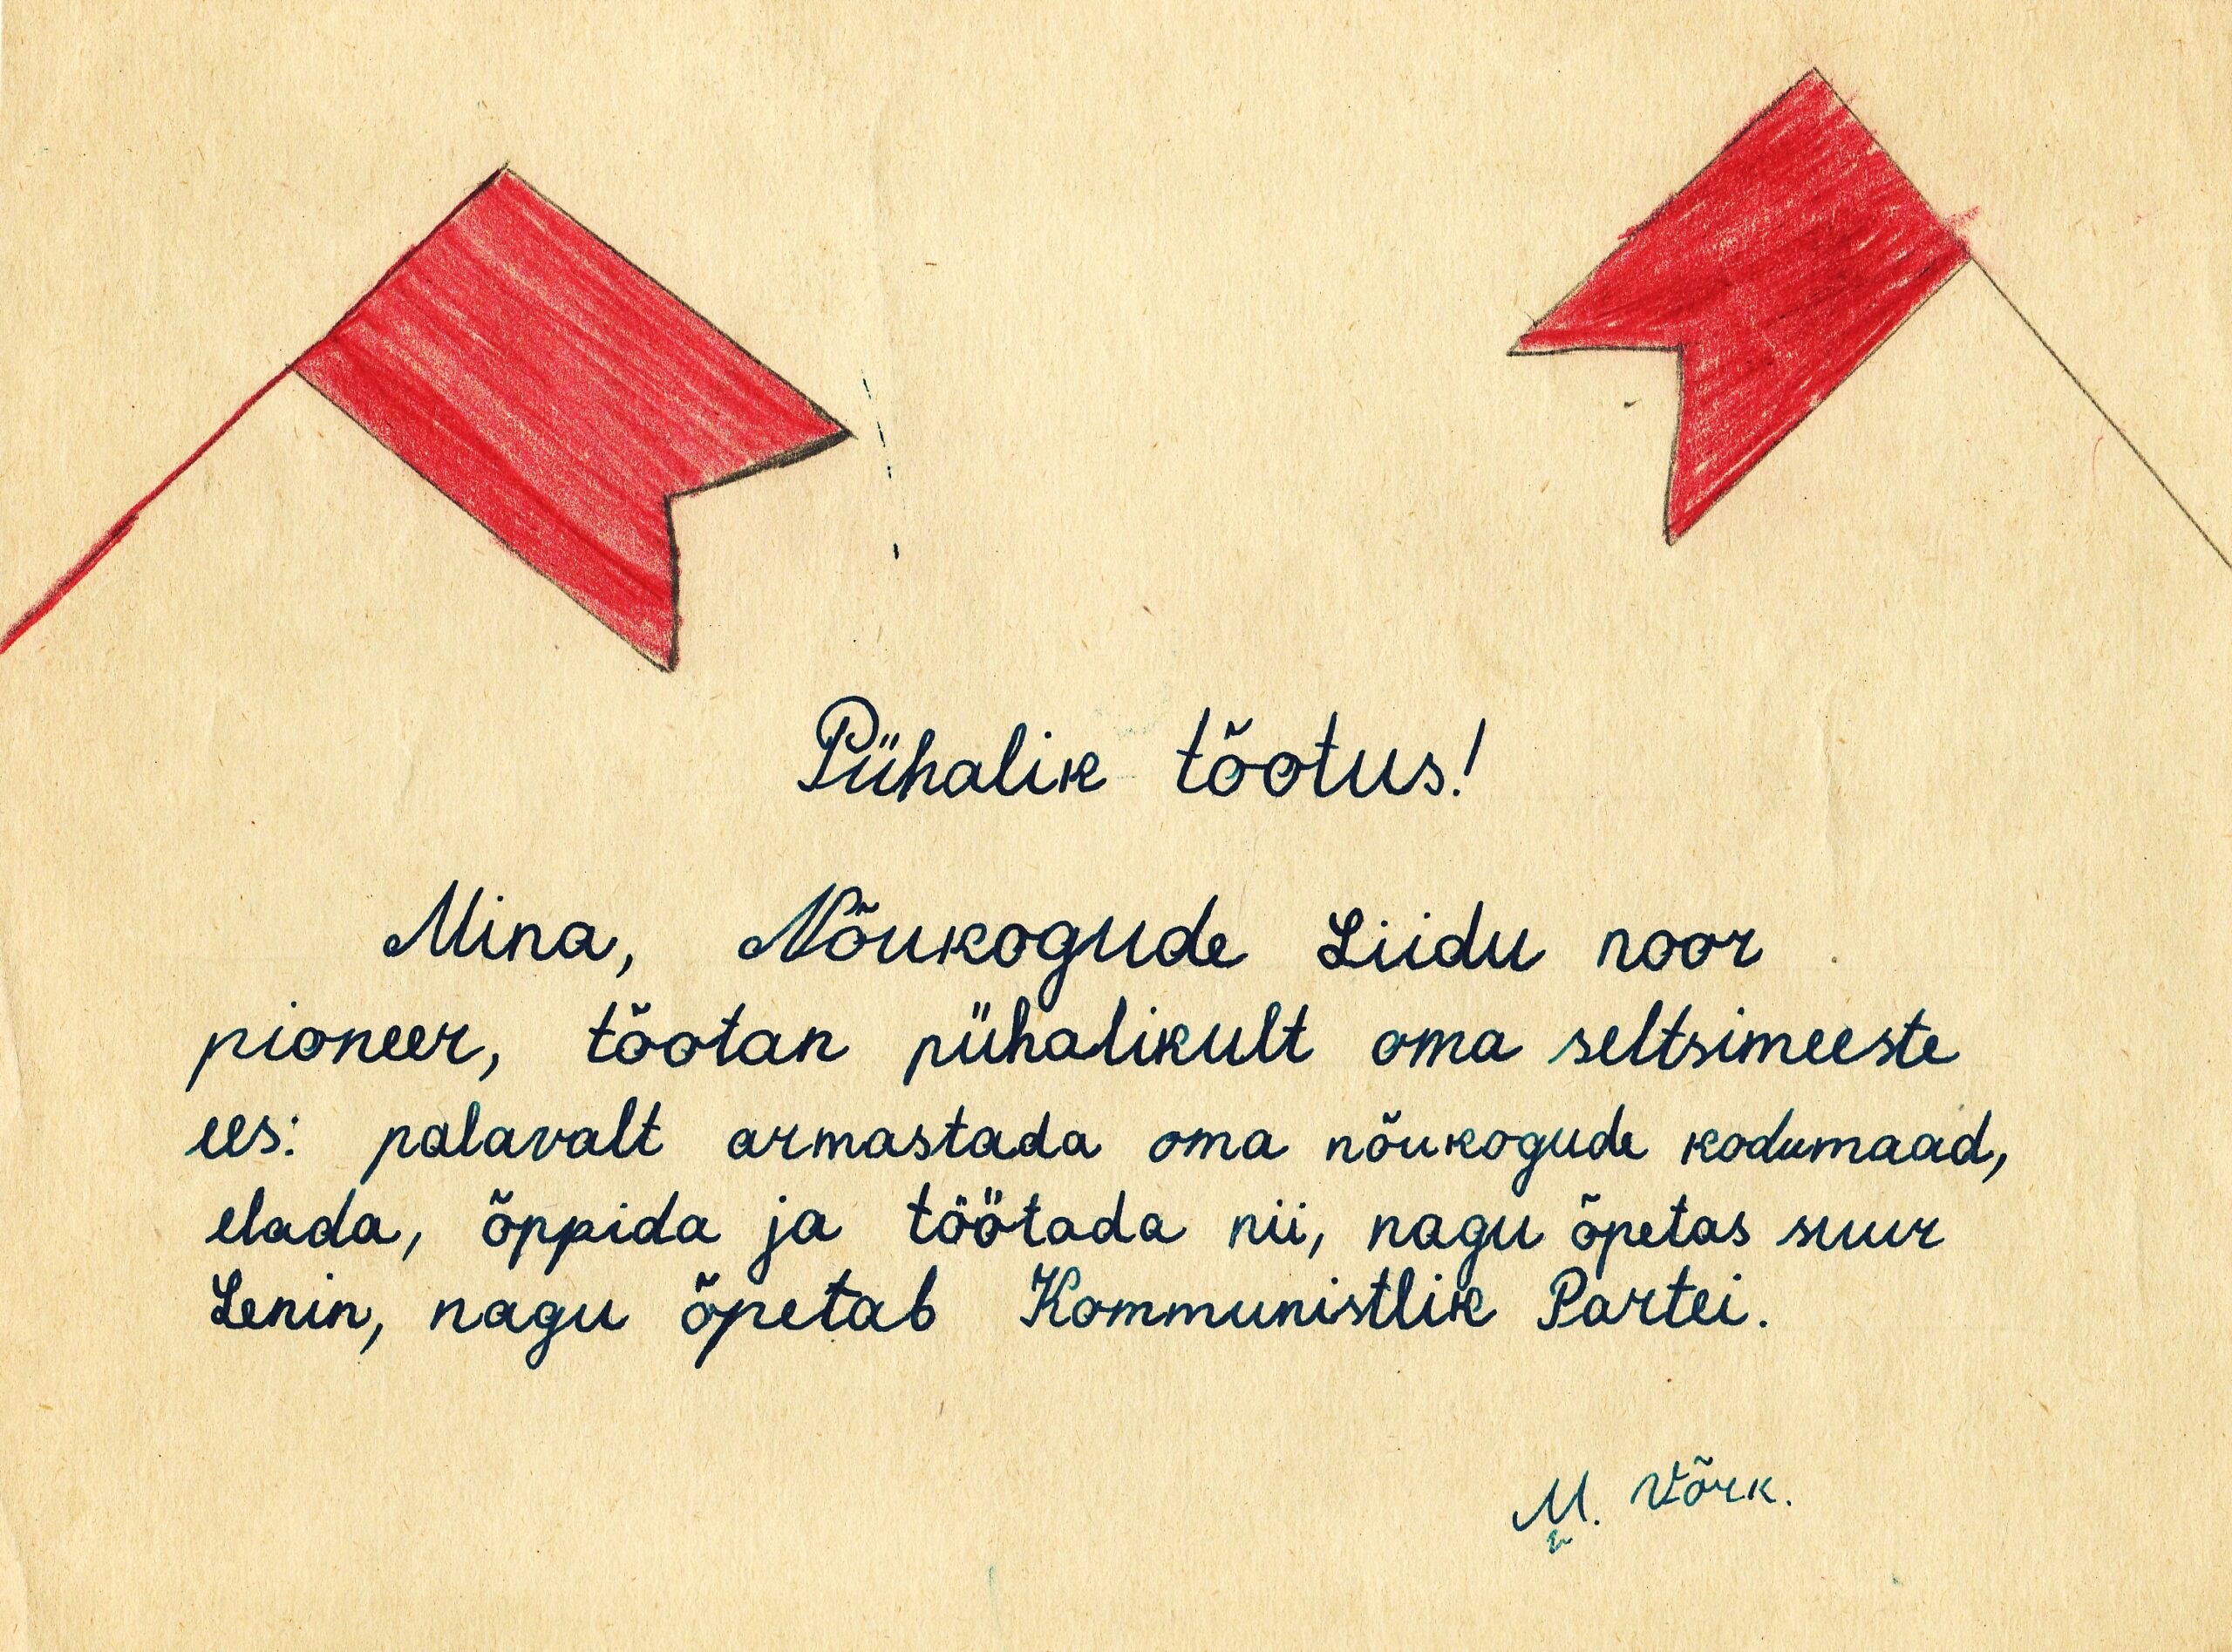 Pühalik tõotus!
Mina, Nõukogude Liidu noor
pioneer, tõotan pühalikult oma seltsimeeste
ees: palavalt armastada oma nõukogude kodumaad,
elada, õppida ja töötada nii, nagu õpetas suur
Lenin, nagu õpetab Kommunistlik Partei.
M. Võrk.